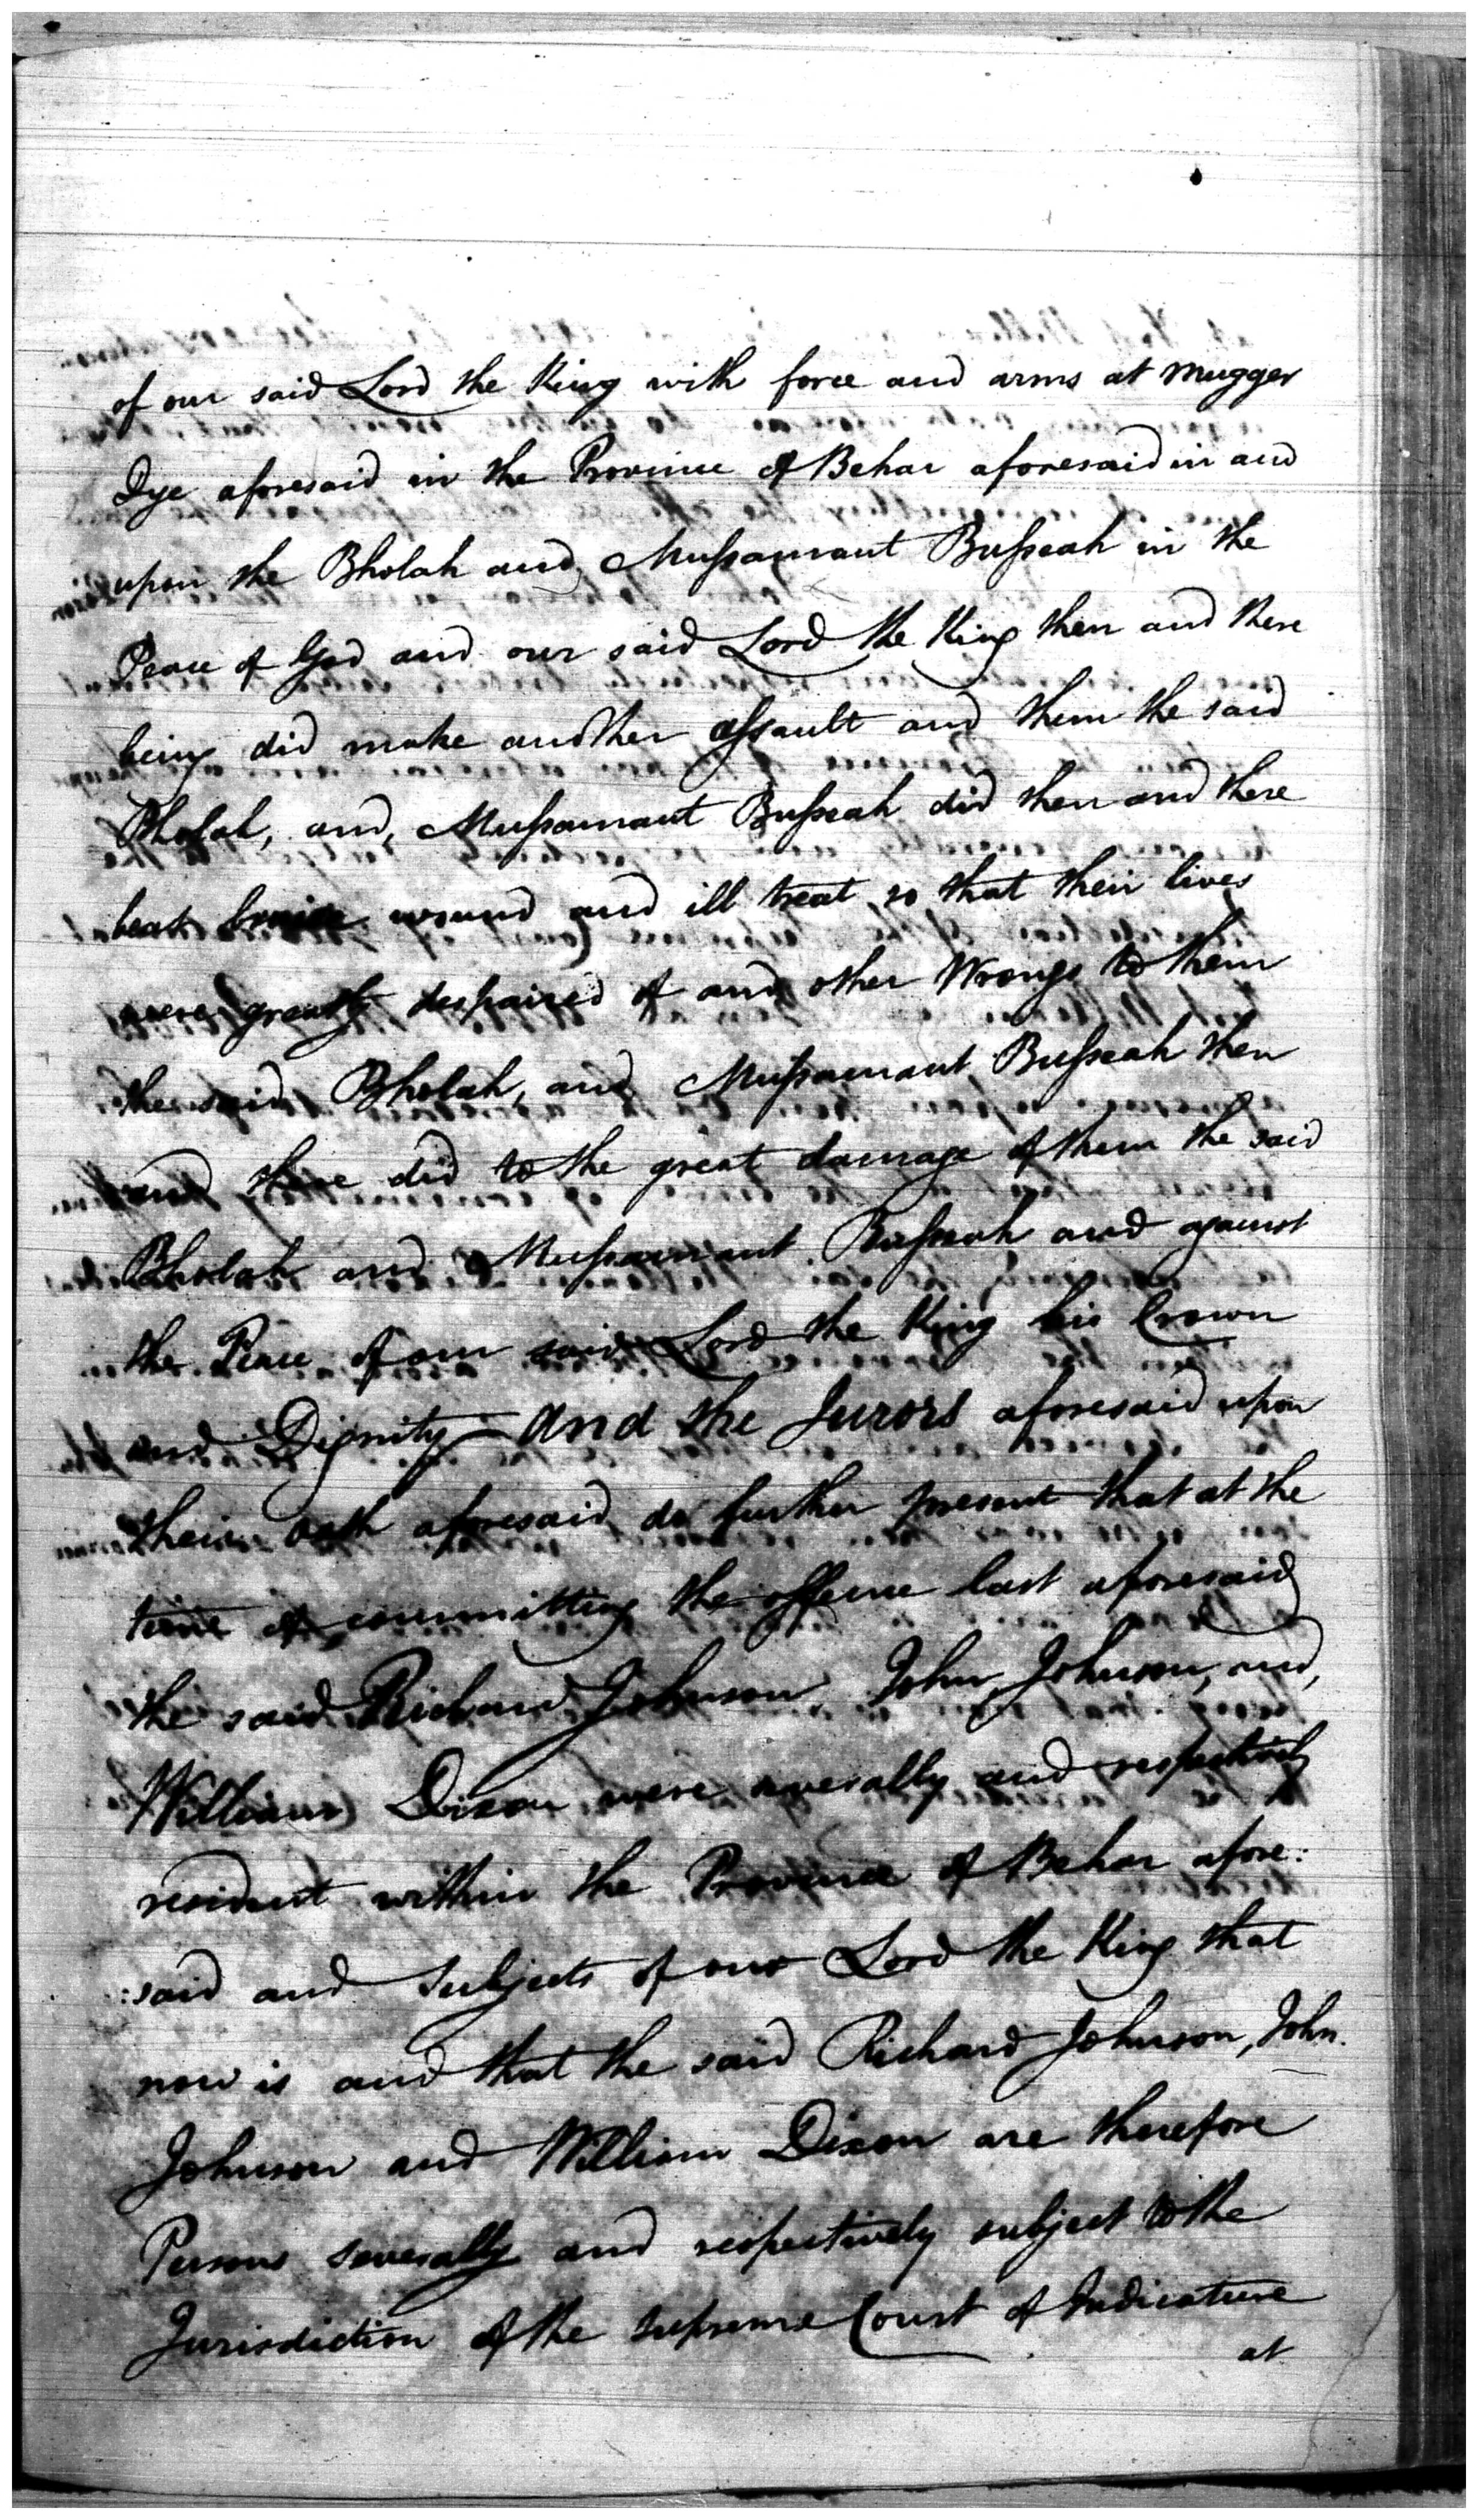 of our said Lord the King with force and arms at mugger
Dye aforesaid in the Province of Behar aforesaid in and
upon the Bholah and Mussamaut Busseah in the
Peace of God and our said Lord the King then and there
being did make another assault and them the said
Bholah, and, Mussamaut Busseah did then and there
beat bruise wound and ill treat so that their lives
were greatly despaired of and other Wrongs to them
the said Bholah, and Mussamaut Busseah then
and there did to the great damage of them the said
Bholah and Mussamaut Busseah and against
the Peace of our said Lord the King his Crown
and Dignity And the Jurors aforesaid upon
their oath aforesaid do further present that at the
time of committing the offence last aforesaid
the said Richard Johnson John Johnson, and,
William Dixon were severally and respectively
resident within the Province of Behar afore:
:said and Subjects of our Lord the King that
now is and that the said Richard Johnson, John
Johnson and William Dixon are therefore
Persons severally and respectively subject to the
Jurisdiction of the supreme Court of Judicature
at